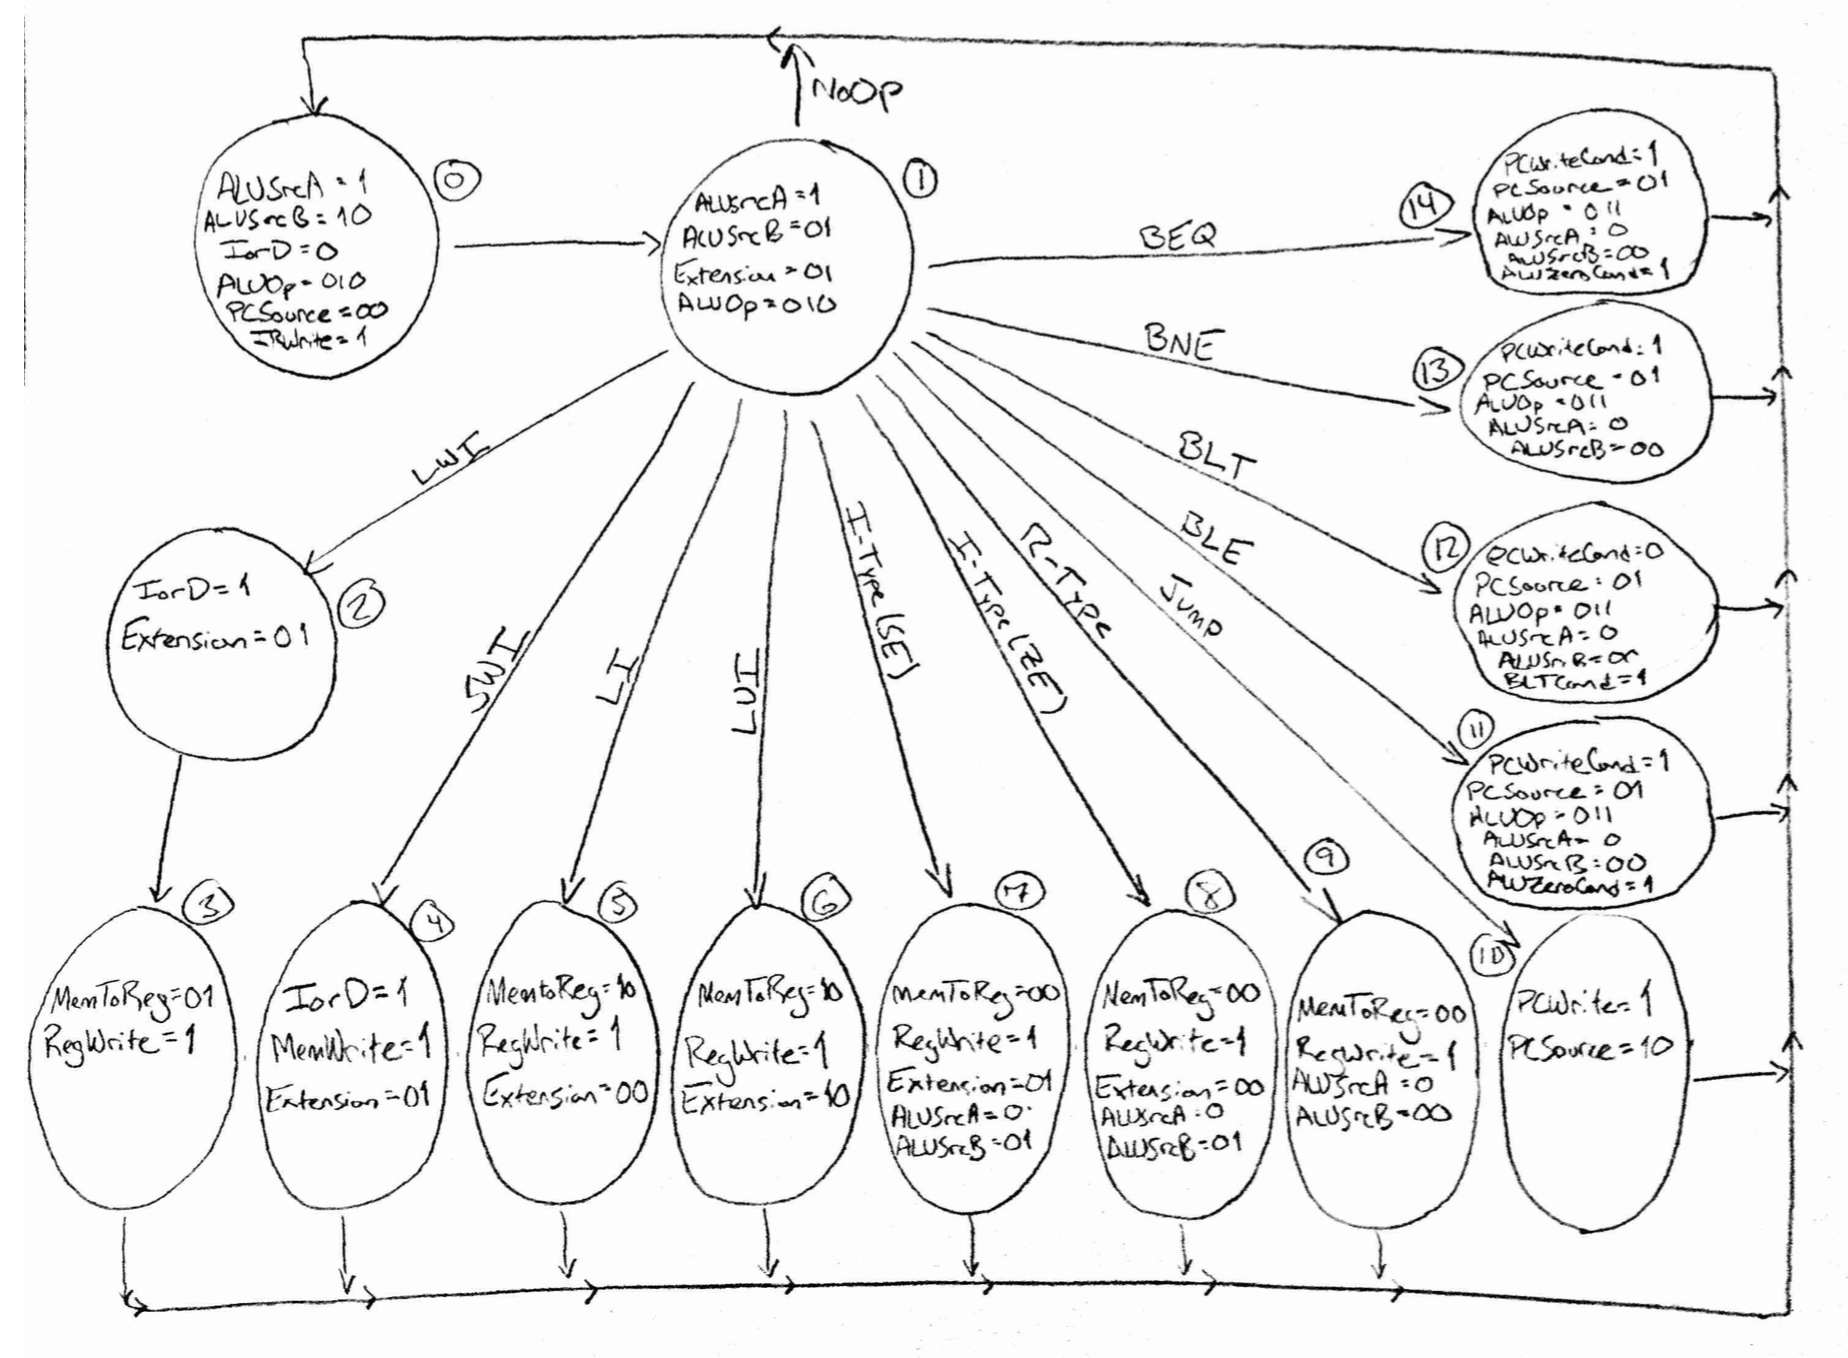 NoOp
0
ALUSrcA = 1
ALUSrcB = 10
IorD = 0
ALUOp = 010
PCSource = 00
IRWrite = 1
1
ALUSrcA = 1
ALUSrcB = 01
Extension = 01
ALUOp = 010
BEQ
14
PCWriteCond = 1
PCSource = 01
ALUOp = 011
ALUSrcA = 0
ALUSrcB = 00
ALUZeroCond = 1
BNE
13
PCWriteCond = 1
PCSource = 01
ALUOp = 011
ALUSrcA = 0
ALUSrcB = 00
BLT
12
PCWriteCond = 0
PCSource = 01
ALUOp = 011
ALUSrcA = 0
BLTCond = 1
BLE
11
PCWriteCond = 1
PCSource = 01
ALUOp = 011
ALUSrcA = 0
ALUSrcB = 00
ALUZeroCond = 1
LWI
2
IorD = 1
Extension = 01
SWI
LI
LUI
I-Type (SE)
I-Type (ZE)
R-Type
Jump
3
MemToReg = 01
RegWrite = 1
4
IorD = 1
MemWrite = 1
Extension = 01
5
MemtoReg = 10
RegWrite = 1
Extension = 00
6
MemToReg = 10
RegWrite = 1
Extension = 10
7
MemToReg = 00
RegWrite = 1
Extension = 01
ALUSrcA = 0
ALUSrcB = 01
8
MemToReg = 00
RegWrite = 1
Extension = 00
ALUSrcA = 0
ALUSrcB = 01
9
MemToReg = 00
RegWrite = 1
ALUSrcA = 0
ALUSrcB = 00
10
PCWrite = 1
PCSource = 10